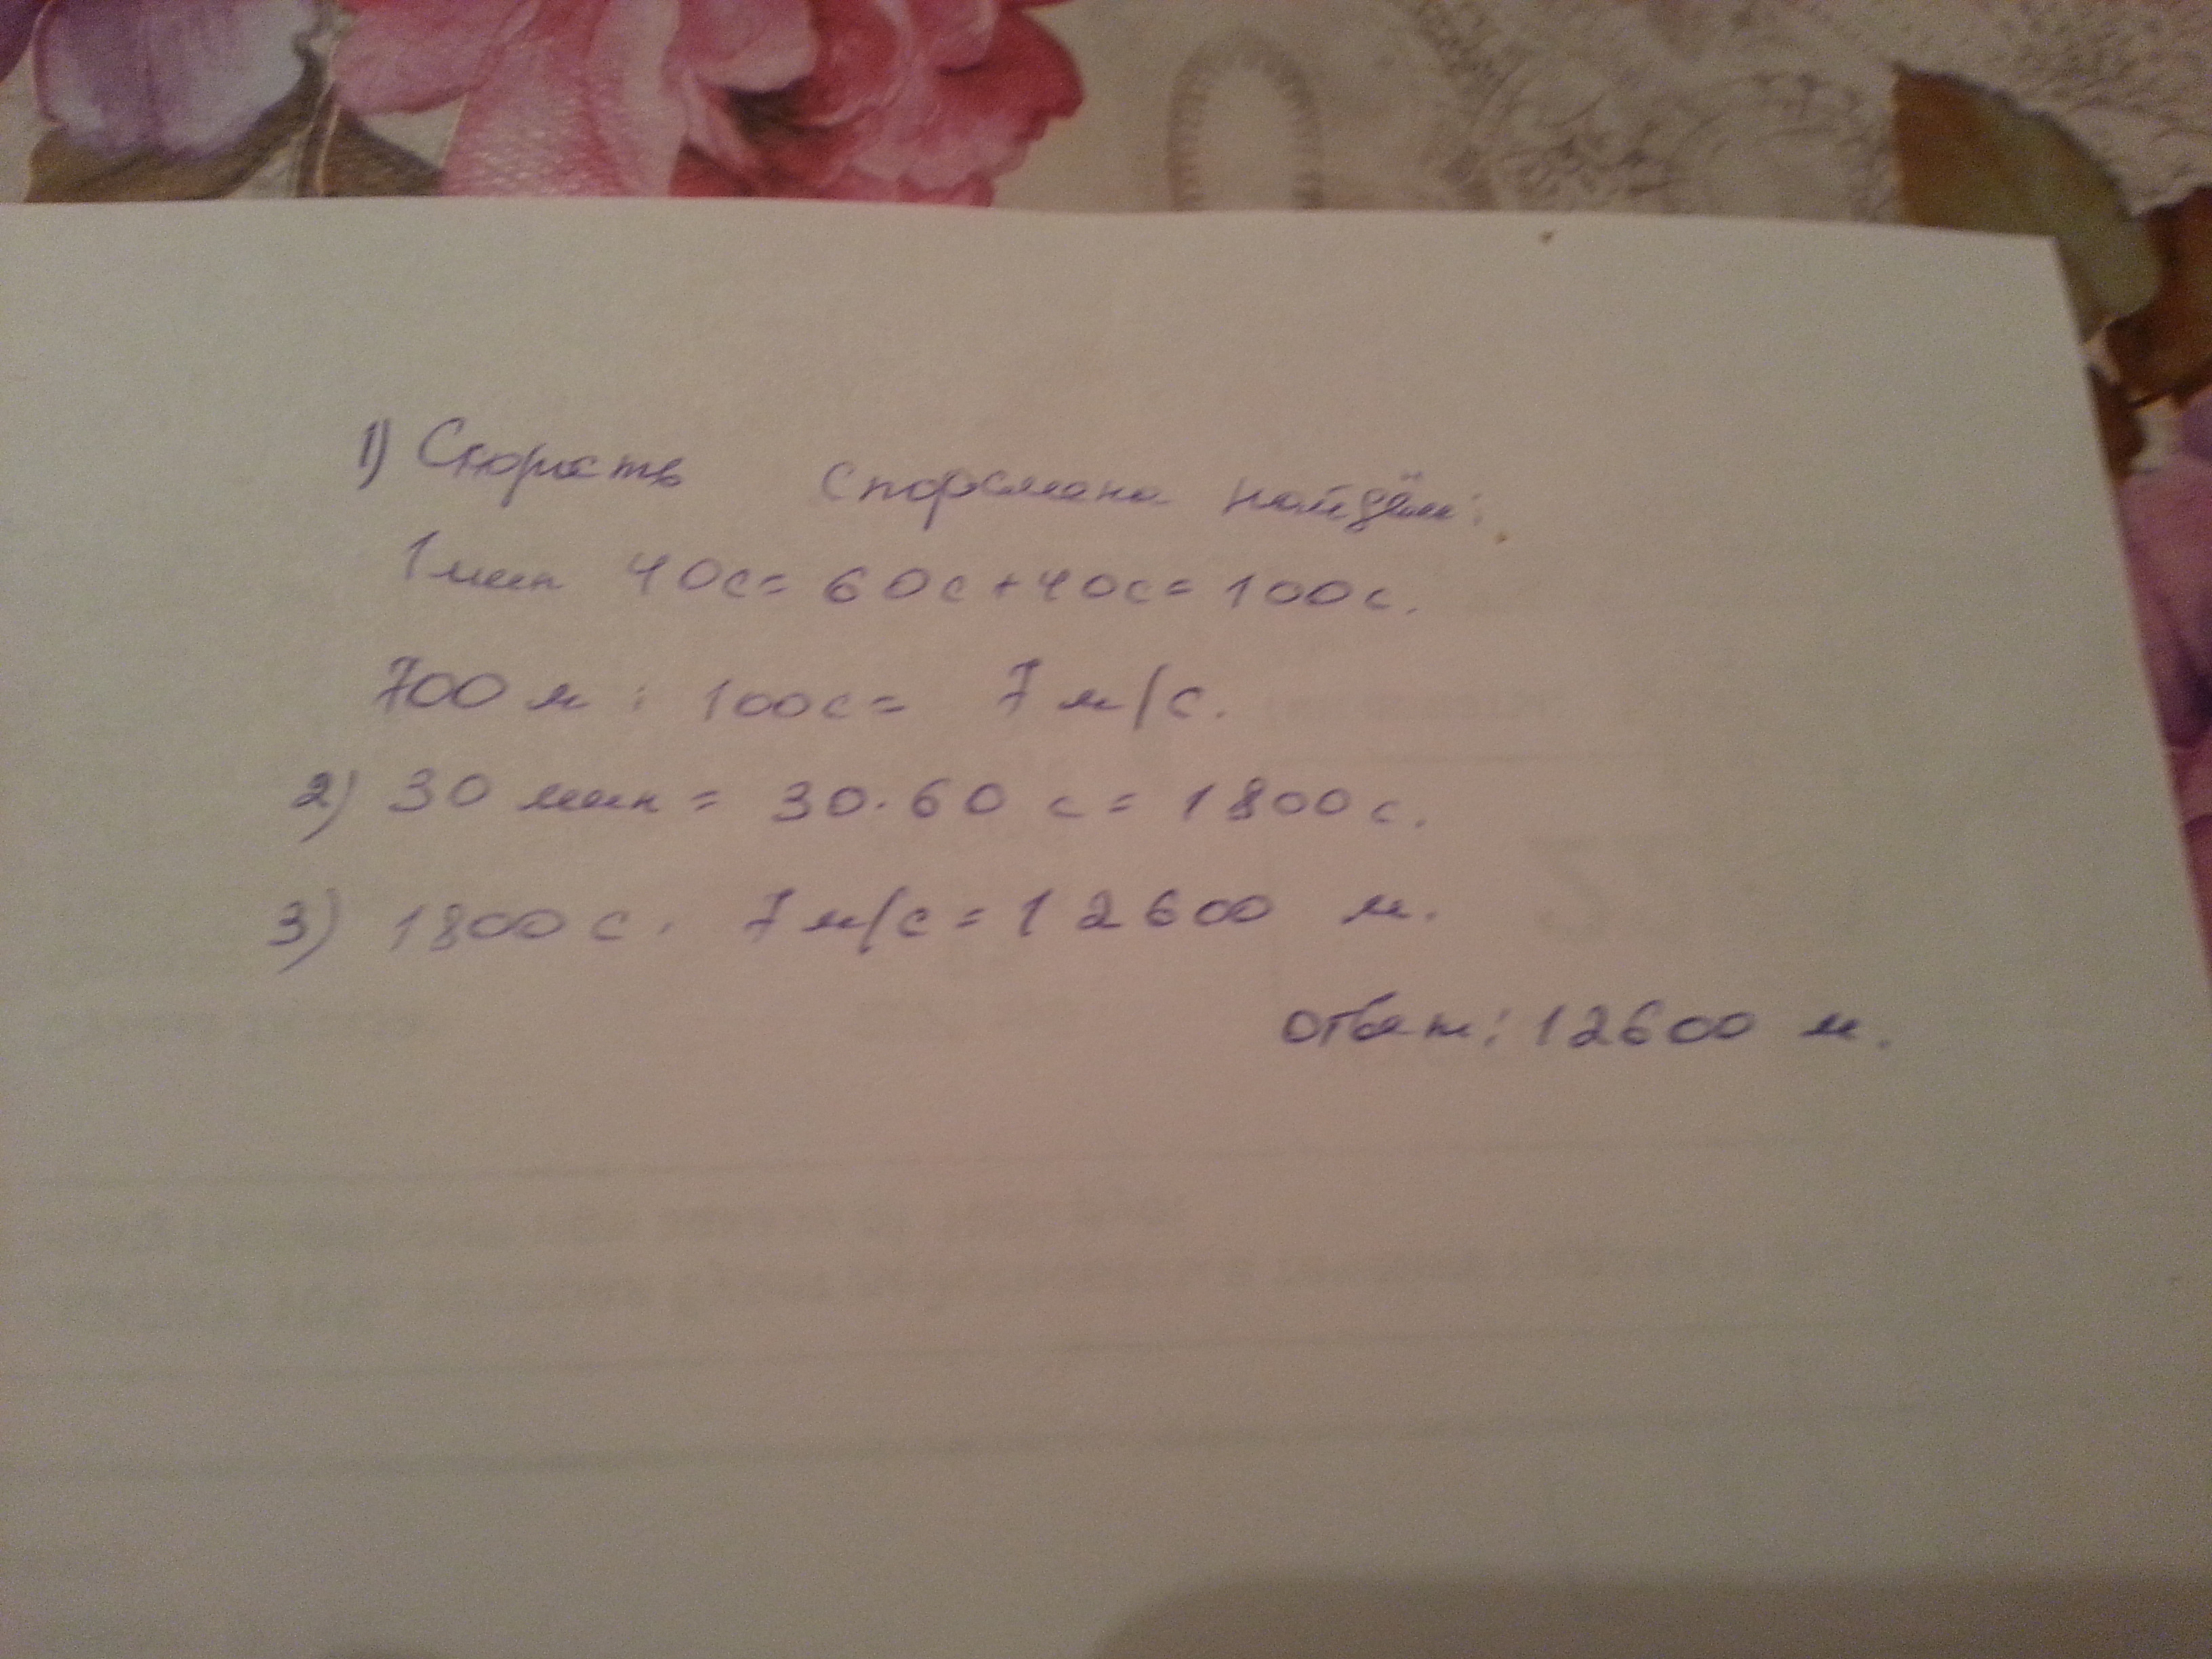 1) Скорость спорсмена найдём:
1 мин 40с = 60с + 40с = 100с.
700 м : 100с = 7 м/с.
2) 30 мин = 30 · 60 с = 1800 с.
3) 1800 с · 7 м/с = 12600 м.
ответ: 12600 м.